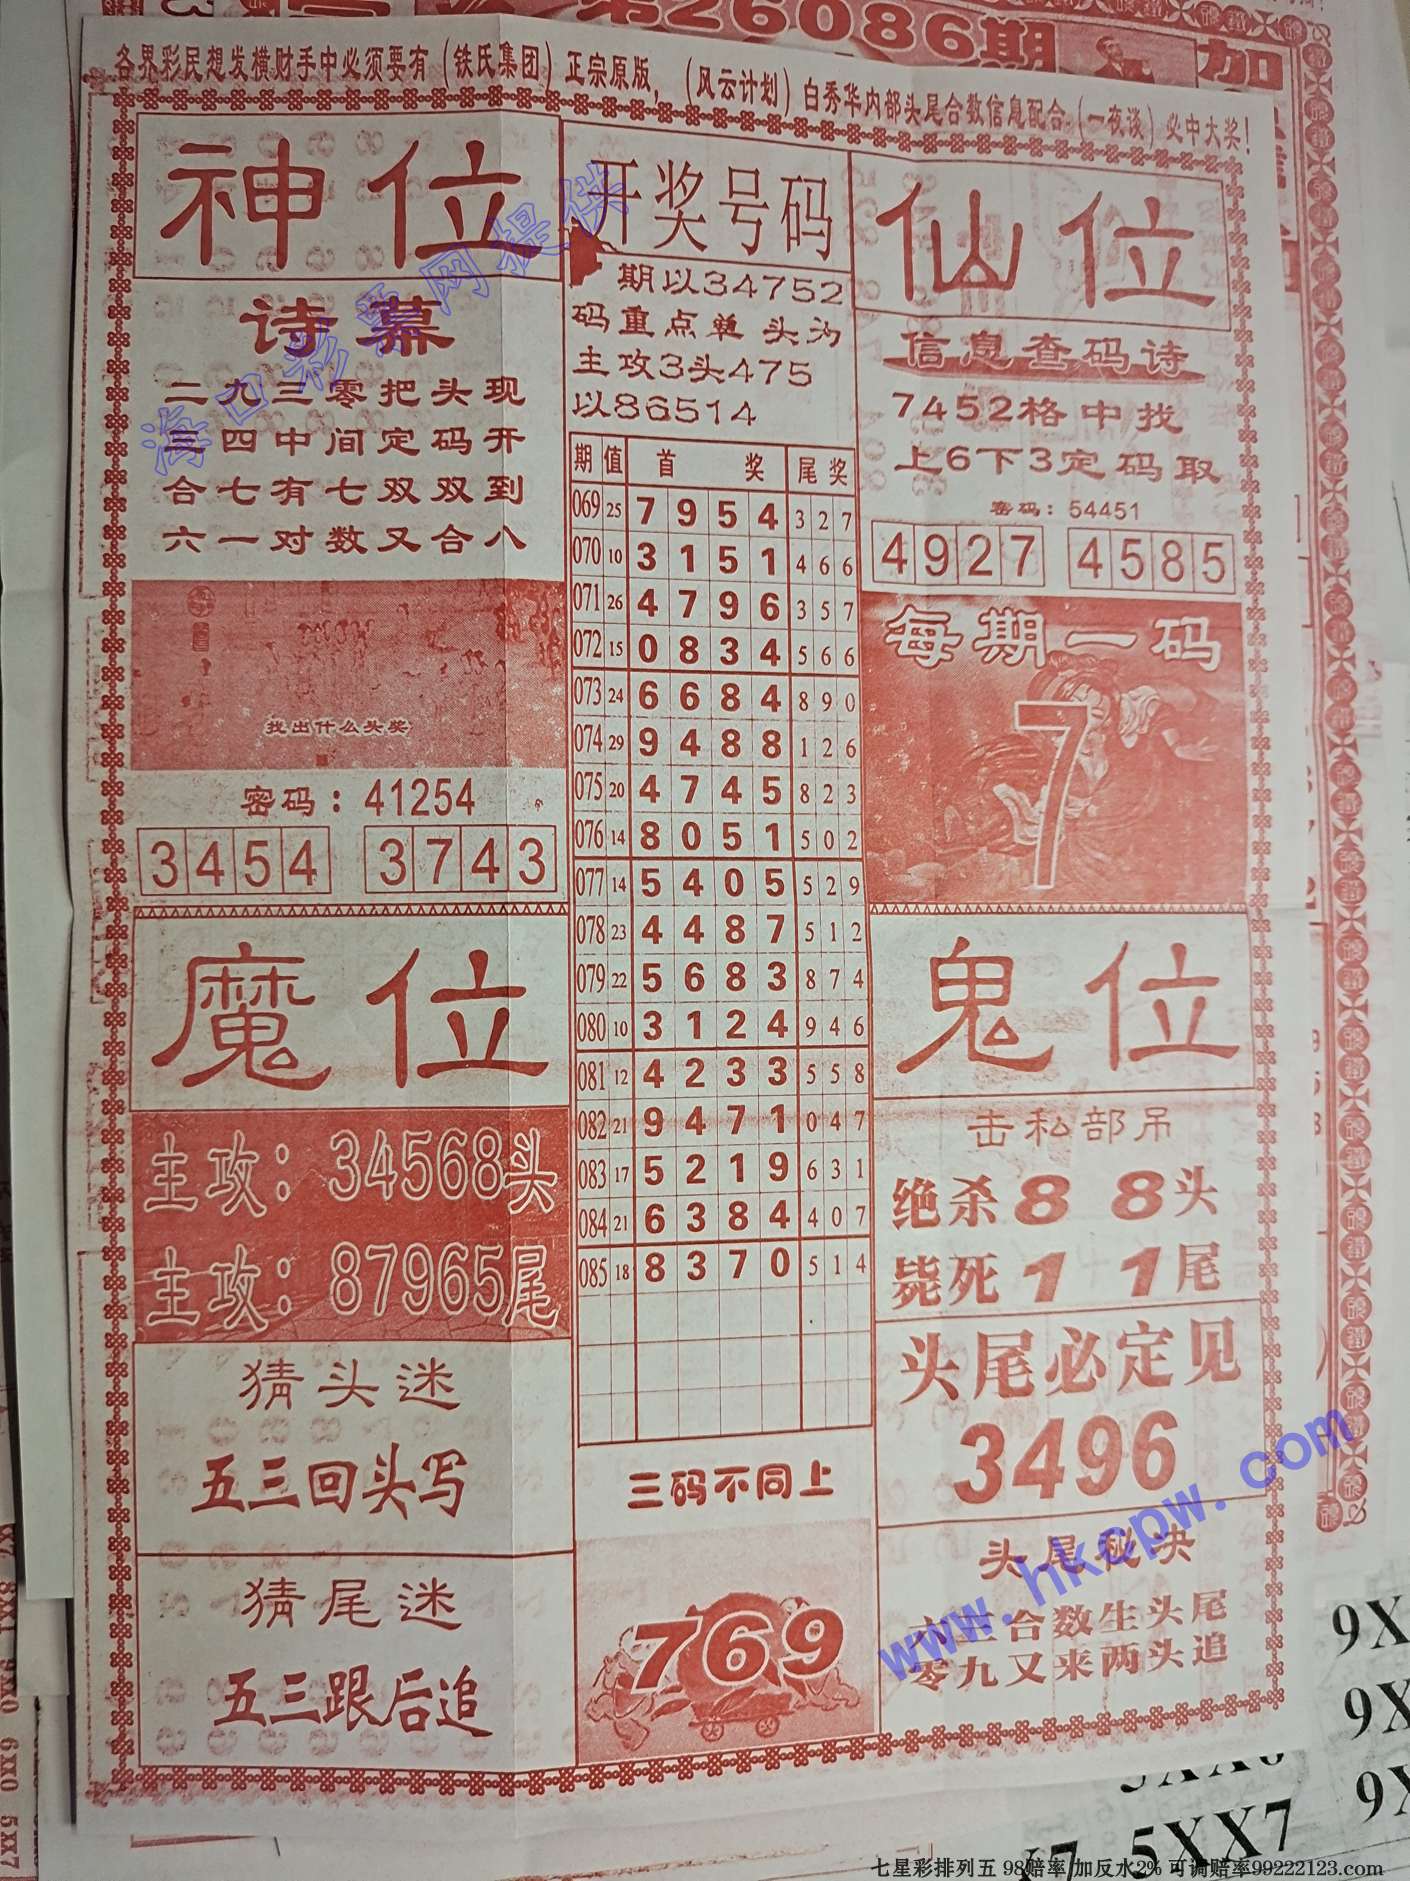 第26086期
加
各界彩民想发横财手中必须要有（铁氏集团）正宗原版，（风云计划）白秀华内部头尾合数信息配合（一夜谈）必中大奖！
神位
诗幕
二九三零把头现
三四中间定码开
合七有七双双到
六一对数又合八
找出什么头奖
密码：41254
3454 3743
开奖号码
期以34752
码重点单头为
主攻3头475
以86514
期 值 首奖 尾奖
069 25 7 9 5 4 3 2 7
070 10 3 1 5 1 4 6 6
071 26 4 7 9 6 3 5 7
072 15 0 8 3 4 5 6 6
073 24 6 6 8 4 8 9 0
074 29 9 4 8 8 1 2 6
075 20 4 7 4 5 8 2 3
076 14 8 0 5 1 5 0 2
077 14 5 4 0 5 5 2 9
078 23 4 4 8 7 5 1 2
079 22 5 6 8 3 8 7 4
080 10 3 1 2 4 9 4 6
081 12 4 2 3 3 5 5 8
082 21 9 4 7 1 0 4 7
083 17 5 2 1 9 6 3 1
084 21 6 3 8 4 4 0 7
085 18 8 3 7 0 5 1 4
三码不同上
769
仙位
信息查码诗
7452格中找
上6下3定码取
密码：54451
4927 4585
每期一码
7
魔位
主攻：34568头
主攻：87965尾
猜头迷
五三回头写
猜尾迷
五三跟后追
鬼位
击私部吊
绝杀88头
毙死11尾
头尾必定见
3496
头尾秘决
六三合数生头尾
零九又来两头追
海口彩票网提供
www.hkcpw.com
9X
9X
9X
5XX7
七星彩排列五 98赔率 加反水2% 可调赔率99222123.com